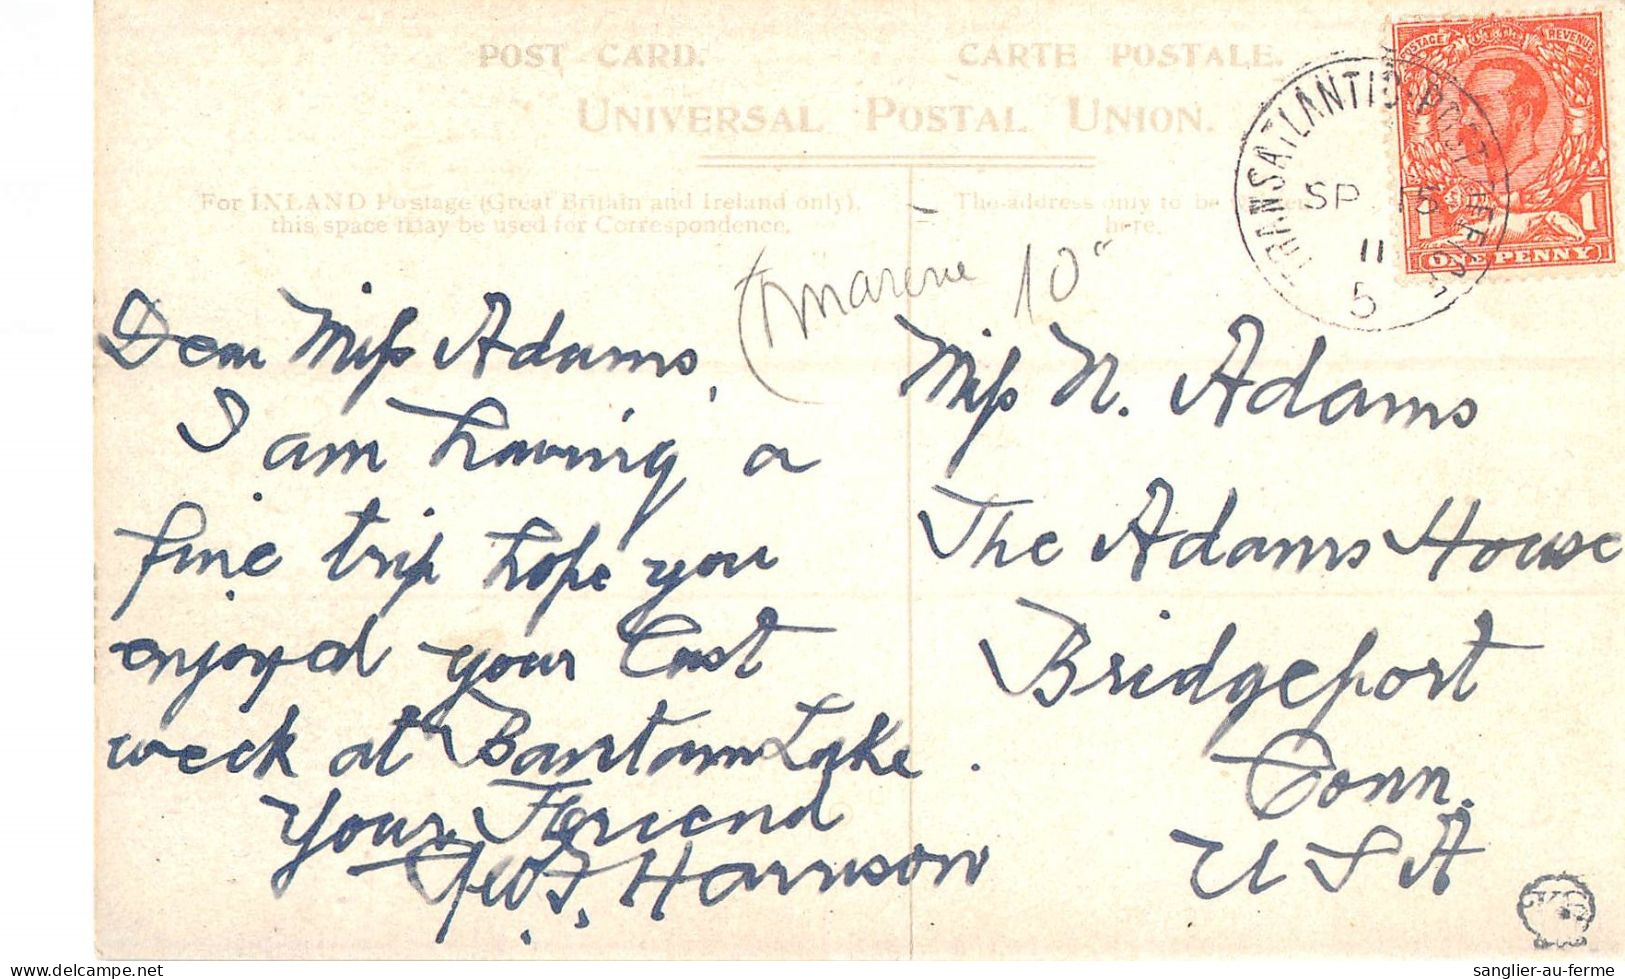 POST CARD.
CARTE POSTALE.
UNIVERSAL POSTAL UNION.
For INLAND Postage (Great Britain and Ireland only),
this space may be used for Correspondence.
The address only to be
here.
TRANSATLANTIC POST OFFICE
SP 10
11
5
POSTAGE REVENUE
1 1
ONE PENNY
10
Dear Miss Adams,
I am having a
fine trip hope you
enjoyed your last
week at Bantam Lake.
Your Friend
Harrison
Miss N. Adams
The Adams House
Bridgeport
Conn.
U S A
sanglier-au-ferme